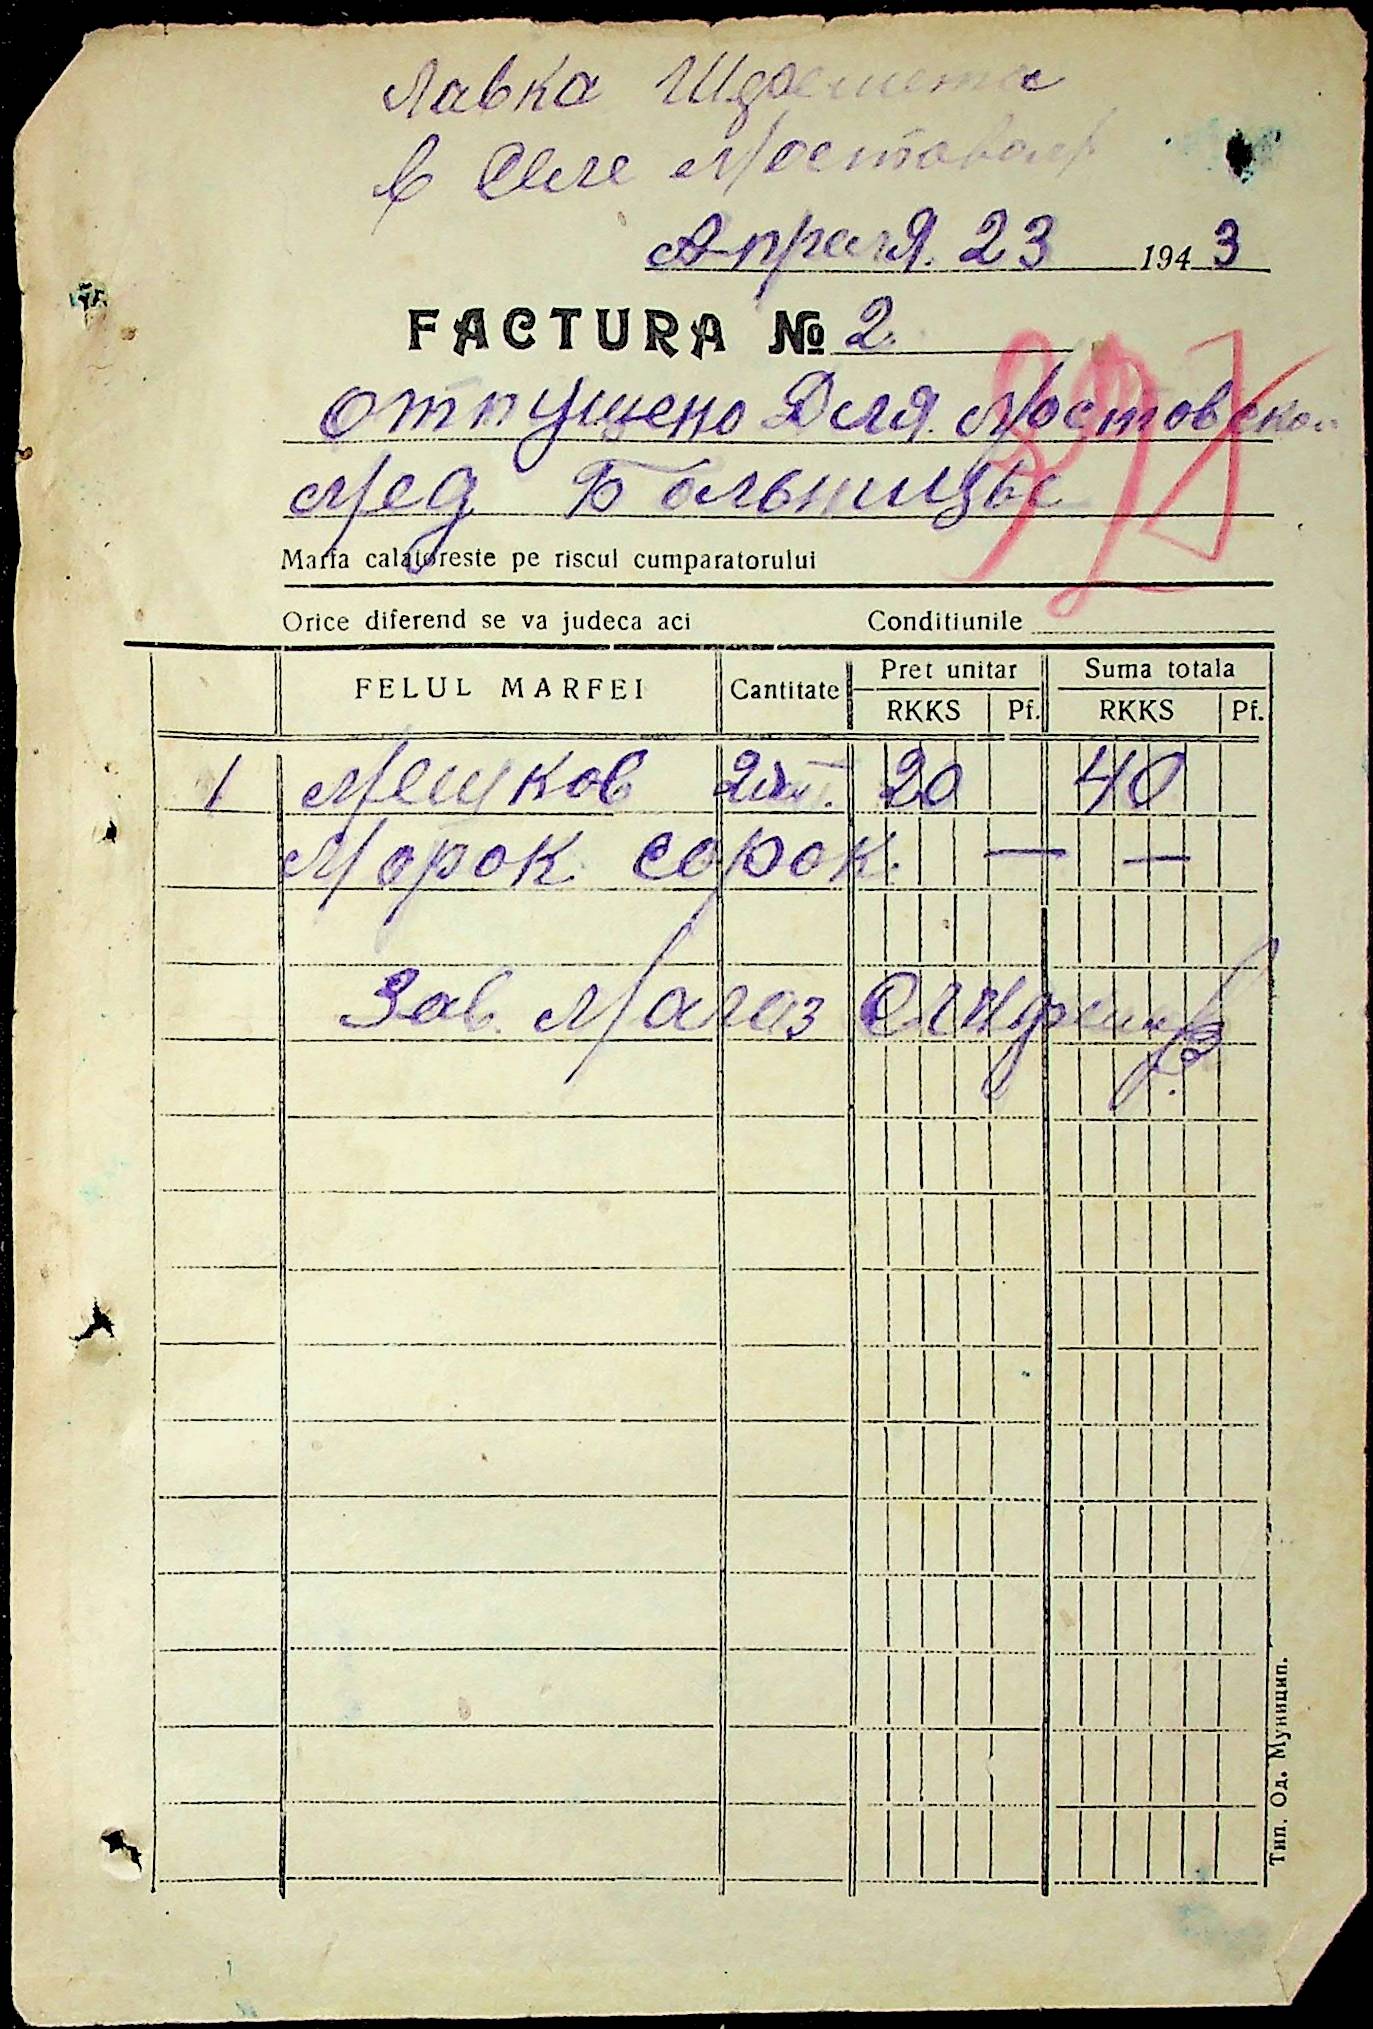 Лавка
в Селе Мостовом
Апреля. 23 1943
FACTURA № 2.
Отпущено Для Мостовской
Мед Больницы
Marfa calatoreste pe riscul cumparatorului
Orice diferend se va judeca aci Conditiunile
FELUL MARFEI Cantitate Pret unitar Suma totala
RKKS Pf. RKKS Pf.
1 Мешков 2шт. 20 40
Морок сорок. — —
Зав. Магаз
Тип. Од. Муницип.